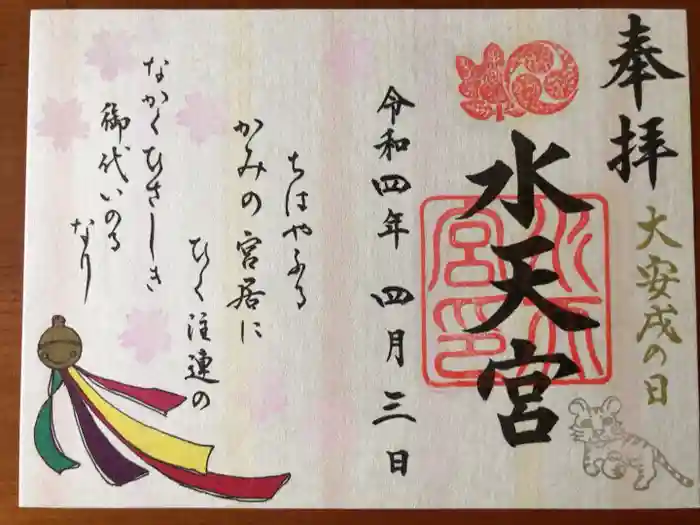 奉拝
大安戌の日
水天宮
水天宮印
令和四年 四月 三日
ちはやふる
かみの宮居に
ひく注連の
なかくひさしき
御代いのる
なり